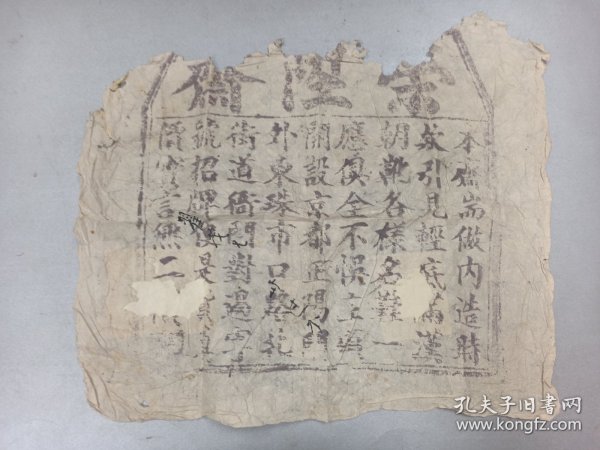 陞齋
本齋耑做内造時
引見輕底滿漢
朝靴各樣名鞋一
應俱全不悞主顧
開設京都正陽門
外東珠市口路北
街道衙門對過
號招牌便是
價實言無二
孔夫子旧书网
www.kongfz.com